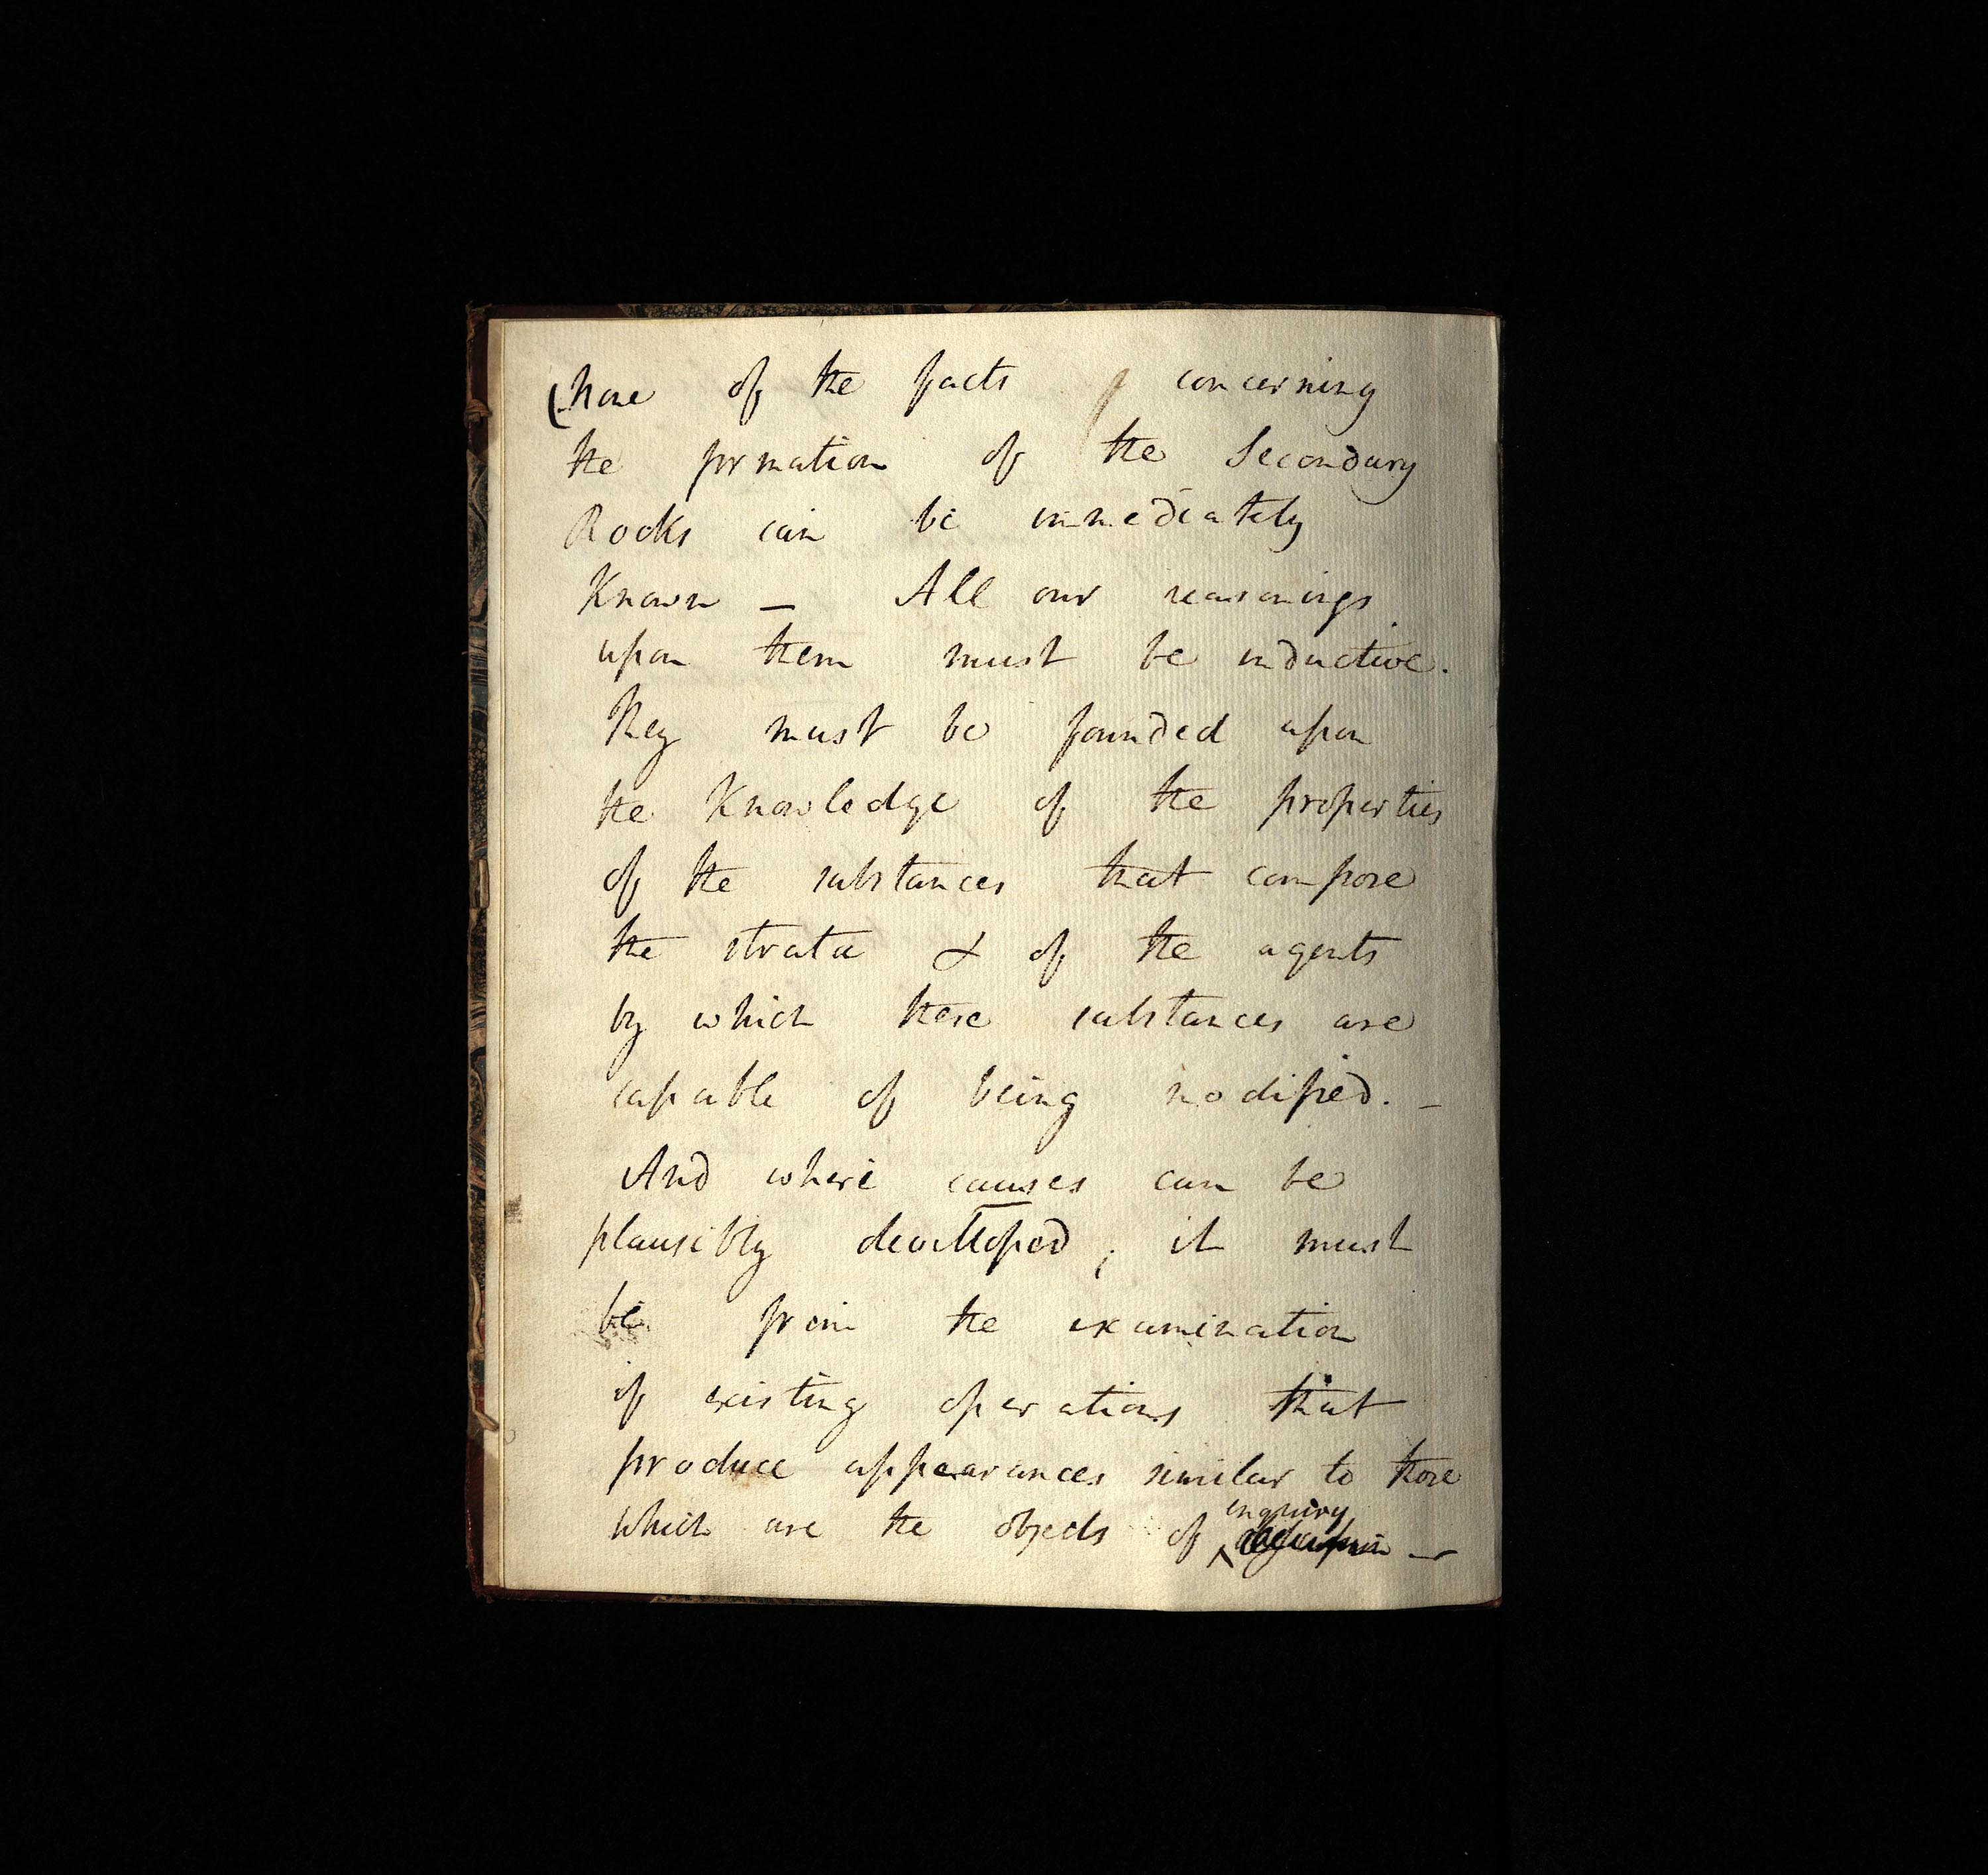 (None of the facts concerning
the formation of the Secondary
Rocks can be immediately
Known — All our reasonings
upon them must be inductive.
They must be founded upon
the Knowledge of the properties
of the substances that compose
the strata & of the agents
by which these substances are
capable of being modified. —
And where causes can be
plausibly developed; it must
be from the examination
of existing operations that
produce appearances similar to those
enquiry
which are the objects of —